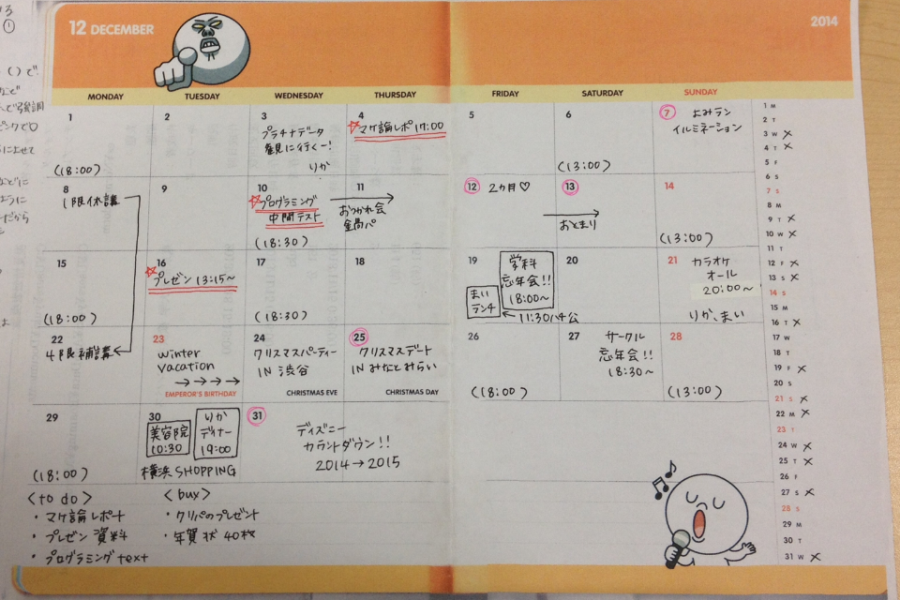 12 DECEMBER
2014
MONDAY
TUESDAY
WEDNESDAY
THURSDAY
FRIDAY
SATURDAY
SUNDAY
1
(18:00)
2
3
プラチナデータ
りか
4
☆マケ論レポ 17:00
5
6
(13:00)
7
よみラン
イルミネーション
8
1限休講
9
10
☆プログラミング
中間テスト
(18:30)
11
おつかれ会
12
2カ月♡
13
おとまり
14
(13:00)
15
(18:00)
16
☆プレゼン 13:15～
17
(18:30)
18
19
学科
忘年会!!
18:00～
まい
ランチ
←11:30ハチ公
20
21
カラオケ
オール
20:00～
りか、まい
22
4限補講
23
winter
vacation
→→→→
EMPEROR'S BIRTHDAY
24
クリスマスパーティー
IN 渋谷
CHRISTMAS EVE
25
クリスマスデート
IN みなとみらい
CHRISTMAS DAY
26
(18:00)
27
サークル
忘年会!!
18:30～
28
(13:00)
29
(18:00)
30
美容院
10:30
りか
ディナー
19:00
横浜 SHOPPING
31
ディズニー
カウントダウン!!
2014→2015
<to do>
・マケ論レポート
・プレゼン 資料
・プログラミング text
<buy>
・クリパのプレゼント
・年賀状 40枚
1 M
2 T
3 W ×
4 T ×
5 F
6 S
7 S
8 M
9 T ×
10 W ×
11 T
12 F ×
13 S ×
14 S
15 M
16 T ×
17 W
18 T
19 F ×
20 S
21 S ×
22 M ×
23 T
24 W ×
25 T ×
26 F
27 S ×
28 S
29 M
30 T
31 W ×